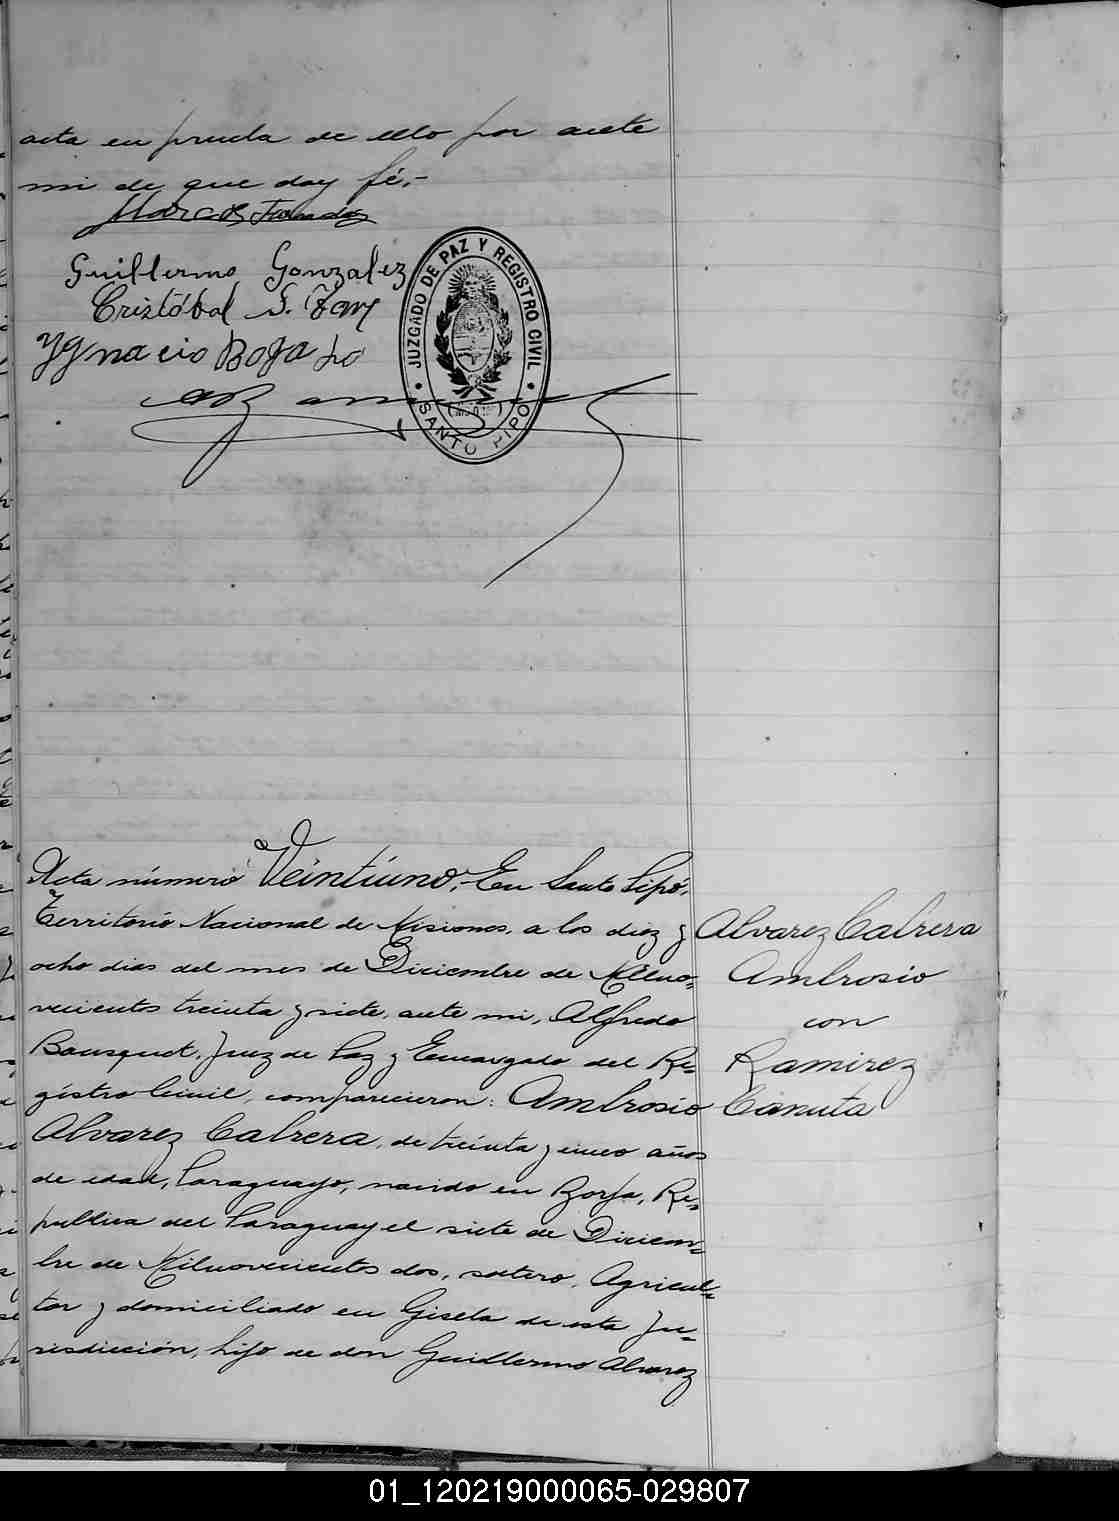 acta en prueba de ello por ante
mi de que doy fé.-
Guillermo Gonzalez
Cristóbal S.
Ygnacio Bogado
JUZGADO DE PAZ Y REGISTRO CIVIL
SANTO PIPO
Acta número Veintiuno.- En Santo Pipó,
Territorio Nacional de Misiones, a los diez y
ocho dias del mes de Diciembre de Milno=
vecientos treinta y siete, ante mi, Alfredo
Bousquet, Juez de Paz y Encargado del Re=
gistro Civil, comparecieron: Ambrosio
Alvarez Cabrera, de treinta y cinco años
de edad, Paraguayo, nacido en Borja, Re=
publica del Paraguay el siete de Diciem=
bre de Milnovecientos dos, soltero, Agricul=
tor y domiciliado en Gisela de esta Ju=
risdicción, hijo de don Guillermo Alvarez
Alvarez Cabrera
Ambrosio
con
Ramirez
Canuta
01_120219000065-029807